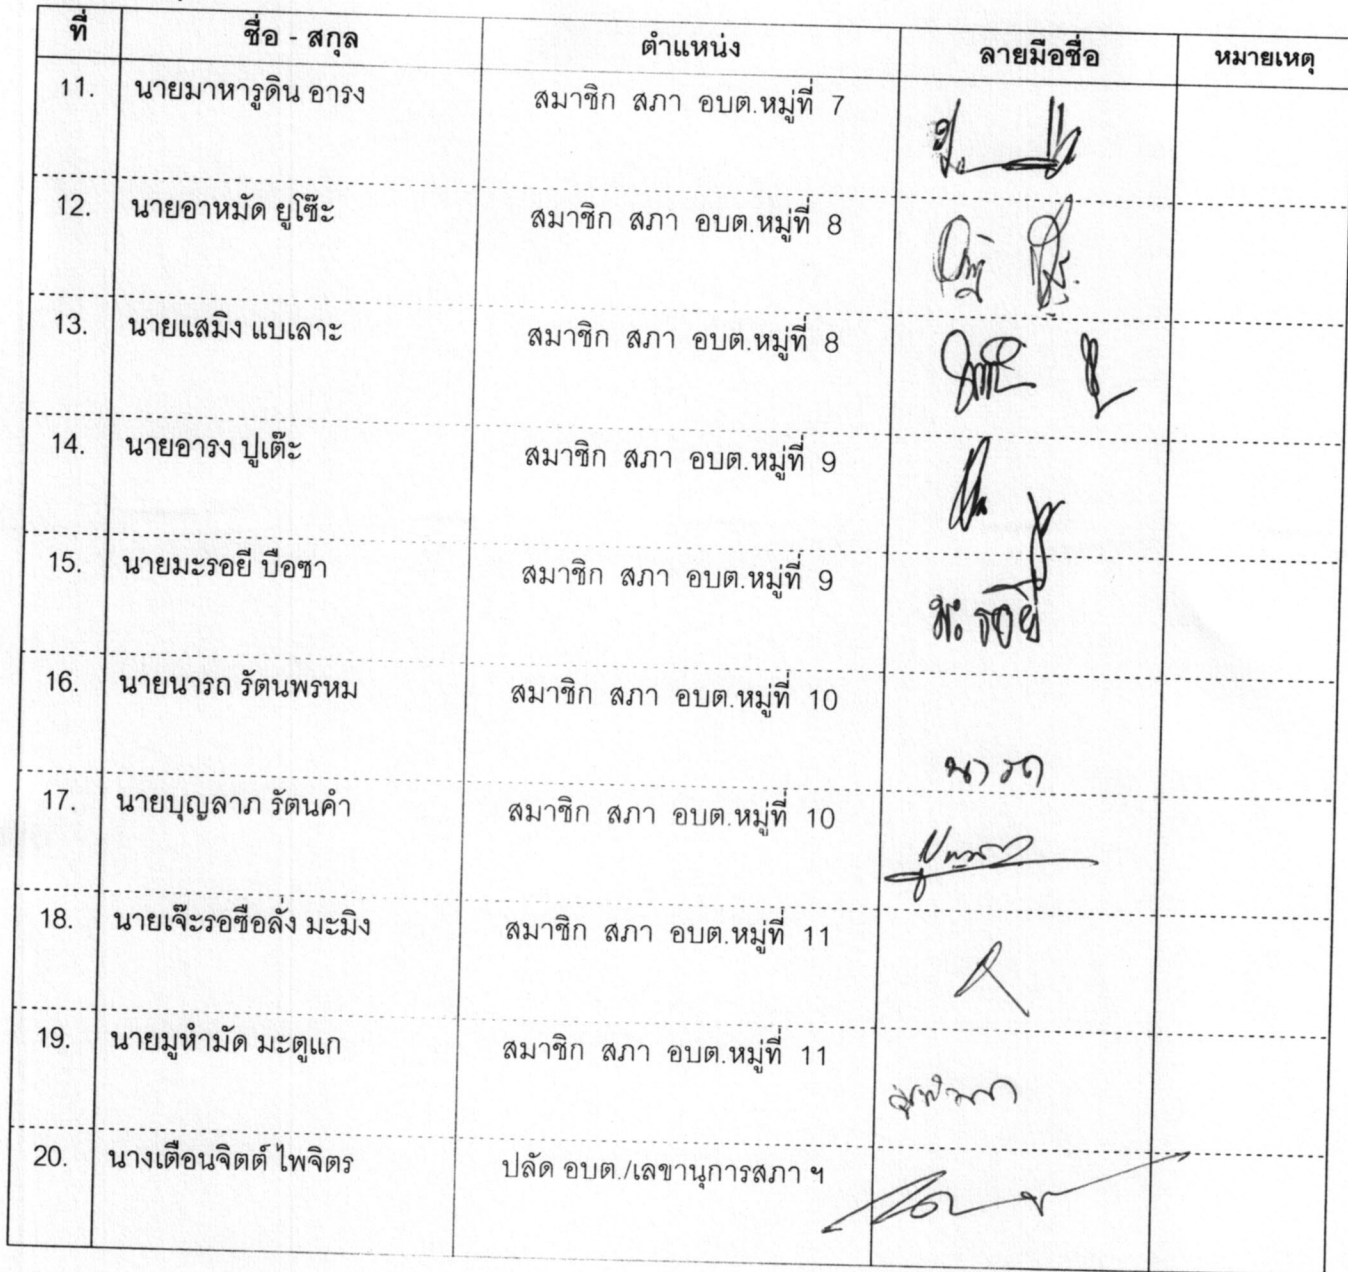 ที่ ชื่อ - สกุล ตำแหน่ง ลายมือชื่อ หมายเหตุ
11. นายมาหารูดิน อารง สมาชิก สภา อบต.หมู่ที่ 7
12. นายอาหมัด ยูโซ๊ะ สมาชิก สภา อบต.หมู่ที่ 8
13. นายแสมิง แบเลาะ สมาชิก สภา อบต.หมู่ที่ 8
14. นายอารง ปูเต๊ะ สมาชิก สภา อบต.หมู่ที่ 9
15. นายมะรอยี บือซา สมาชิก สภา อบต.หมู่ที่ 9 มะรอยี
16. นายนารถ รัตนพรหม สมาชิก สภา อบต.หมู่ที่ 10 นารถ
17. นายบุญลาภ รัตนคำ สมาชิก สภา อบต.หมู่ที่ 10
18. นายเจ๊ะรอซือลั่ง มะมิง สมาชิก สภา อบต.หมู่ที่ 11
19. นายมูหำมัด มะตูแก สมาชิก สภา อบต.หมู่ที่ 11
20. นางเตือนจิตต์ ไพจิตร ปลัด อบต./เลขานุการสภา ฯ